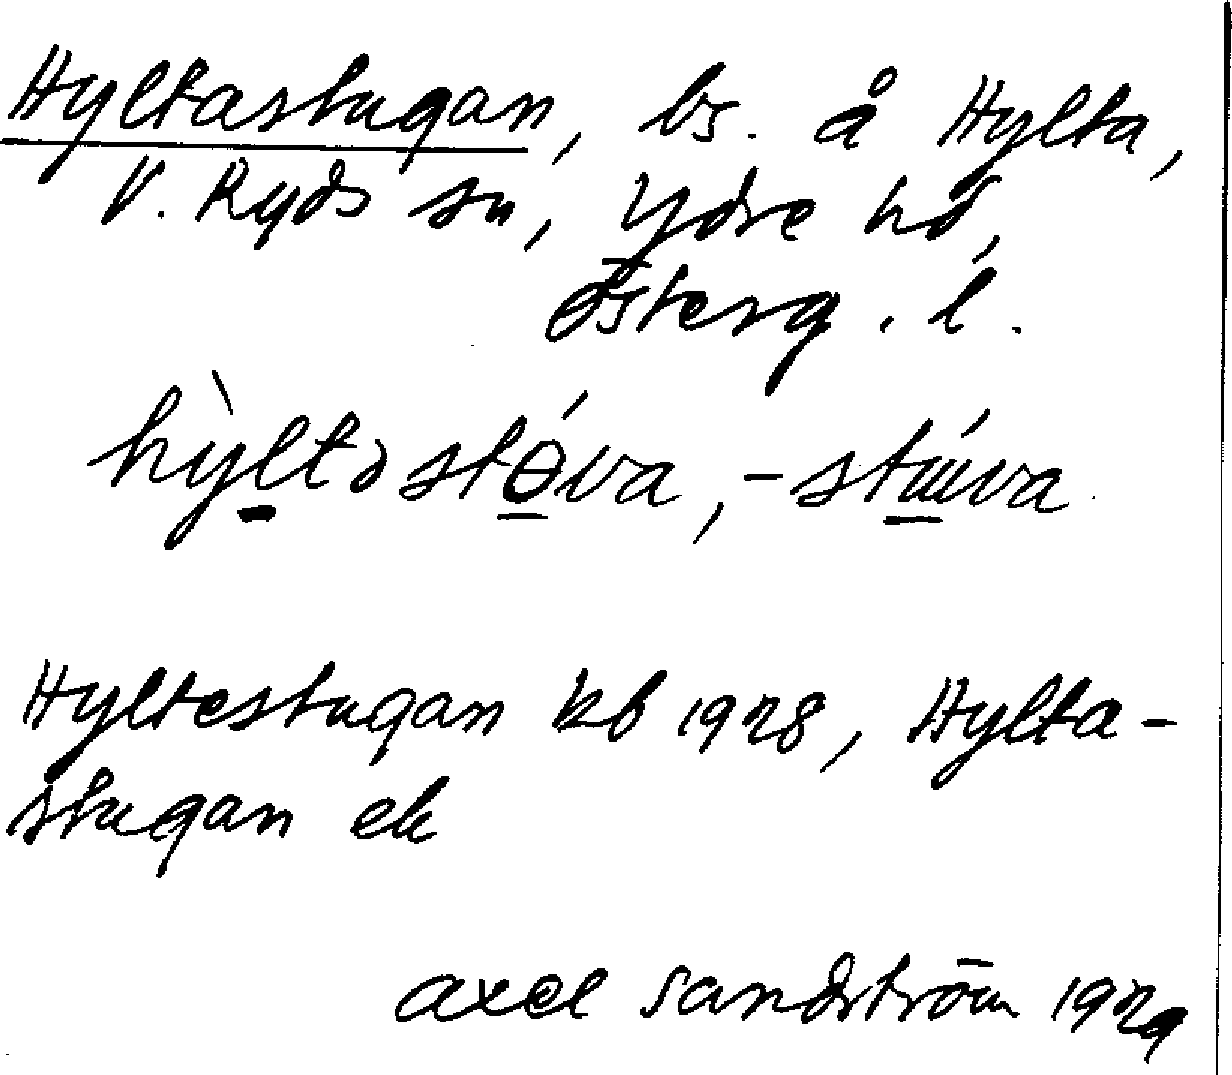 Hyltastugan, ls. å Hylta,
V. Ryds sn, Ydre hd,
Österg. l.
hỳltəstɵ́va, -stúva
Hyltestugan kb 1928, Hylta-
stugan ek
Axel Sandström 1929